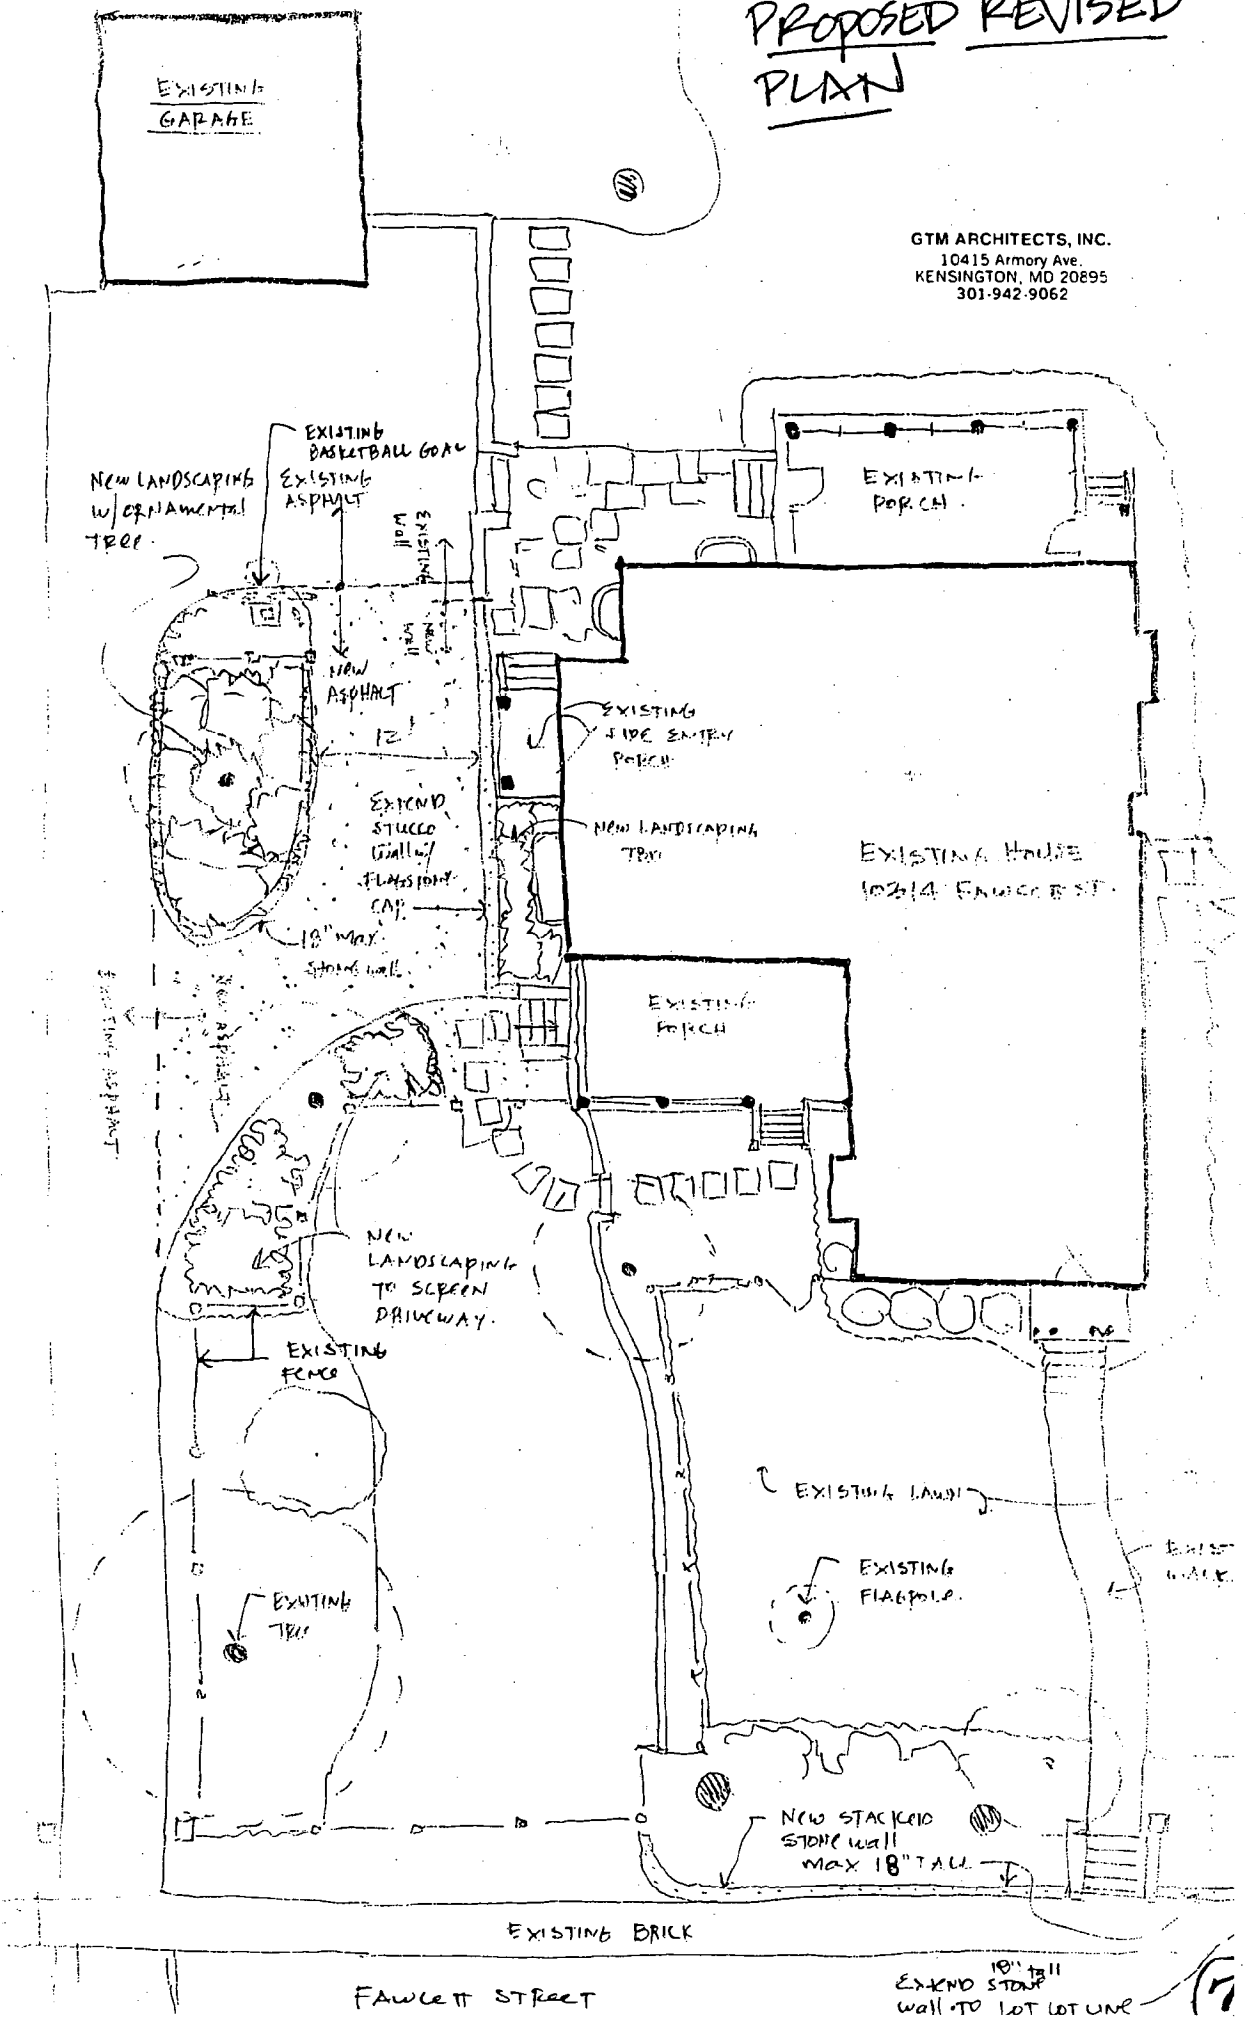 PROPOSED REVISED
PLAN
EXISTING
GARAGE
GTM ARCHITECTS, INC.
10415 Armory Ave.
KENSINGTON, MD 20895
301-942-9062
EXISTING
BASKETBALL GOAL
NEW LANDSCAPING
W/ ORNAMENTAL
TREE.
EXISTING
ASPHALT
EXISTING
WALL
NEW
WALL
EXISTING
PORCH.
NEW
ASPHALT
12'
EXISTING
SIDE ENTRY
PORCH
EXTEND
STUCCO
Wall w/
FLAGSTONE
CAP.
NEW LANDSCAPING
EXISTING HOUSE
10314 FAWCETT ST.
18" MAX.
STONE WALL
EXISTING
PORCH
EXISTING ASPHALT
NEW ASPHALT
NEW
LANDSCAPING
TO SCREEN
DRIVEWAY.
EXISTING
FENCE
EXISTING LAWN
EXIST
WALK
EXISTING
FLAGPOLE.
EXISTING
TREE
NEW STACKED
STONE WALL
MAX 18" TALL
EXISTING BRICK
FAWCETT STREET
18" tall
EXTEND STONE
WALL TO LOT LOT LINE
7